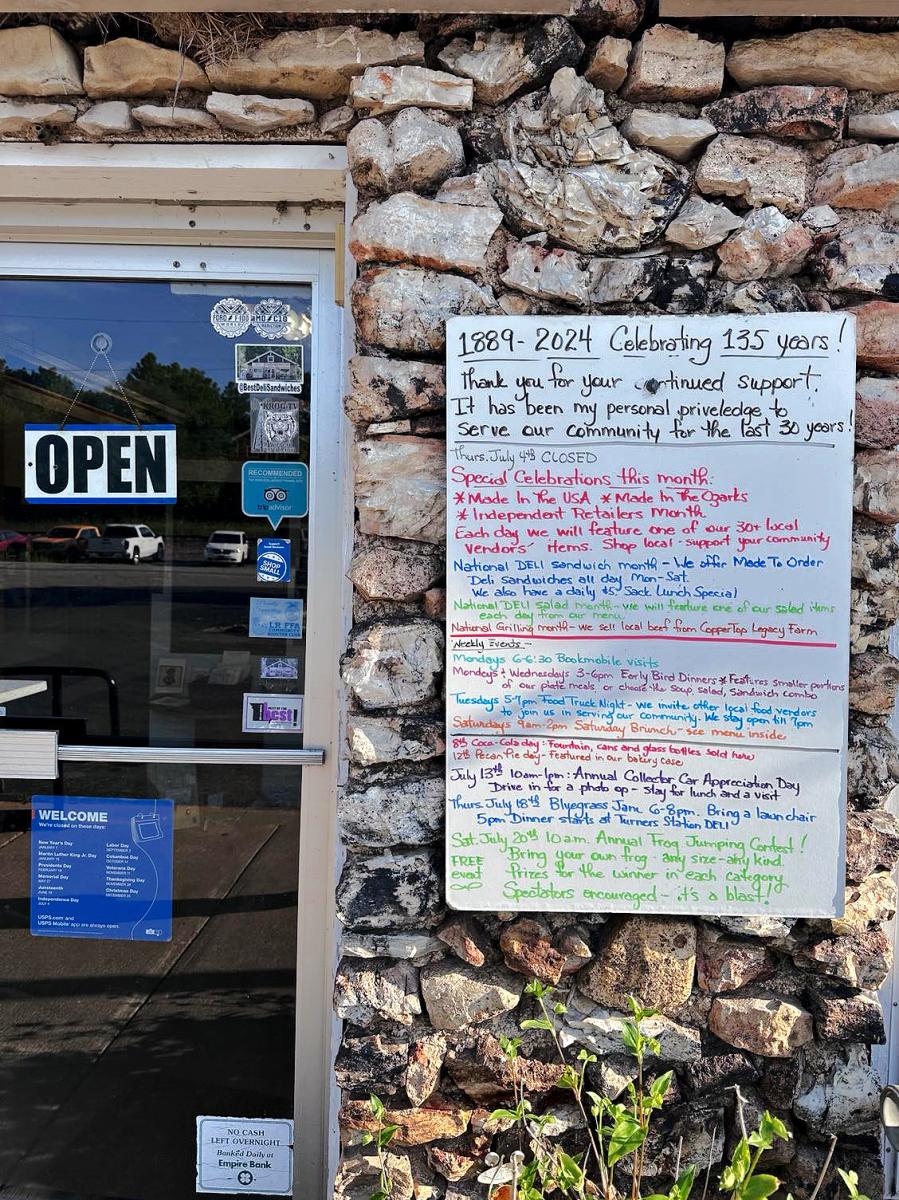 OPEN
@BestDeliSandwiches
RECOMMENDED
tripadvisor
SHOP
SMALL
LR FFA
best!
WELCOME
We're closed on these days:
New Year's Day
Martin Luther King Jr. Day
Presidents Day
Memorial Day
Juneteenth
Independence Day
Labor Day
Columbus Day
Veterans Day
Thanksgiving Day
Christmas Day
USPS.com and
USPS Mobile app are always open.
NO CASH
LEFT OVERNIGHT
Banked Daily at
Empire Bank
1889-2024 Celebrating 135 years!
Thank you for your continued support.
It has been my personal priveledge to
serve our community for the last 30 years!
Thurs. July 4th CLOSED
Special Celebrations this month:
* Made In the USA * Made In The Ozarks
* Independent Retailers Month
Each day we will feature one of our 30+ local
vendors' items. Shop local - support your community
National DELI sandwich month - We offer Made To Order
Deli sandwiches all day Mon-Sat.
We also have a daily $5. Sack Lunch Special
National DELI salad month - we will feature one of our salad items
each day from our menu.
National Grilling month - we sell local beef from CopperTop Legacy Farm
Weekly Events -
Mondays 6-6:30 Bookmobile visits
Mondays & Wednesdays 3-6pm Early Bird Dinners * Features smaller portions
of our plate meals, or choose the soup, salad, sandwich combo
Tuesdays 5-7pm Food Truck Night - we invite other local food vendors
to join us in serving our community. We stay open till 7pm
Saturdays 9am-2pm Saturday Brunch - see menu inside
8th Coca-Cola day: Fountain, cans and glass bottles sold here
12th Pecan Pie day - Featured in our bakery case
July 13th 10am-1pm: Annual Collector Car Appreciation Day
Drive in for a photo op - stay for lunch and a visit
Thurs. July 18th Bluegrass Jam 6-8pm. Bring a lawn chair
5pm Dinner starts at Turners Station DELI
Sat. July 20th 10am. Annual Frog Jumping Contest!
FREE Bring your own frog - any size - any kind.
event Prizes for the winner in each category
Spectators encouraged - it's a blast!